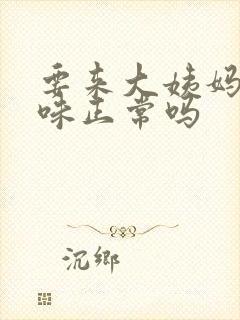 要来大姨妈
味正常吗
沉鄉